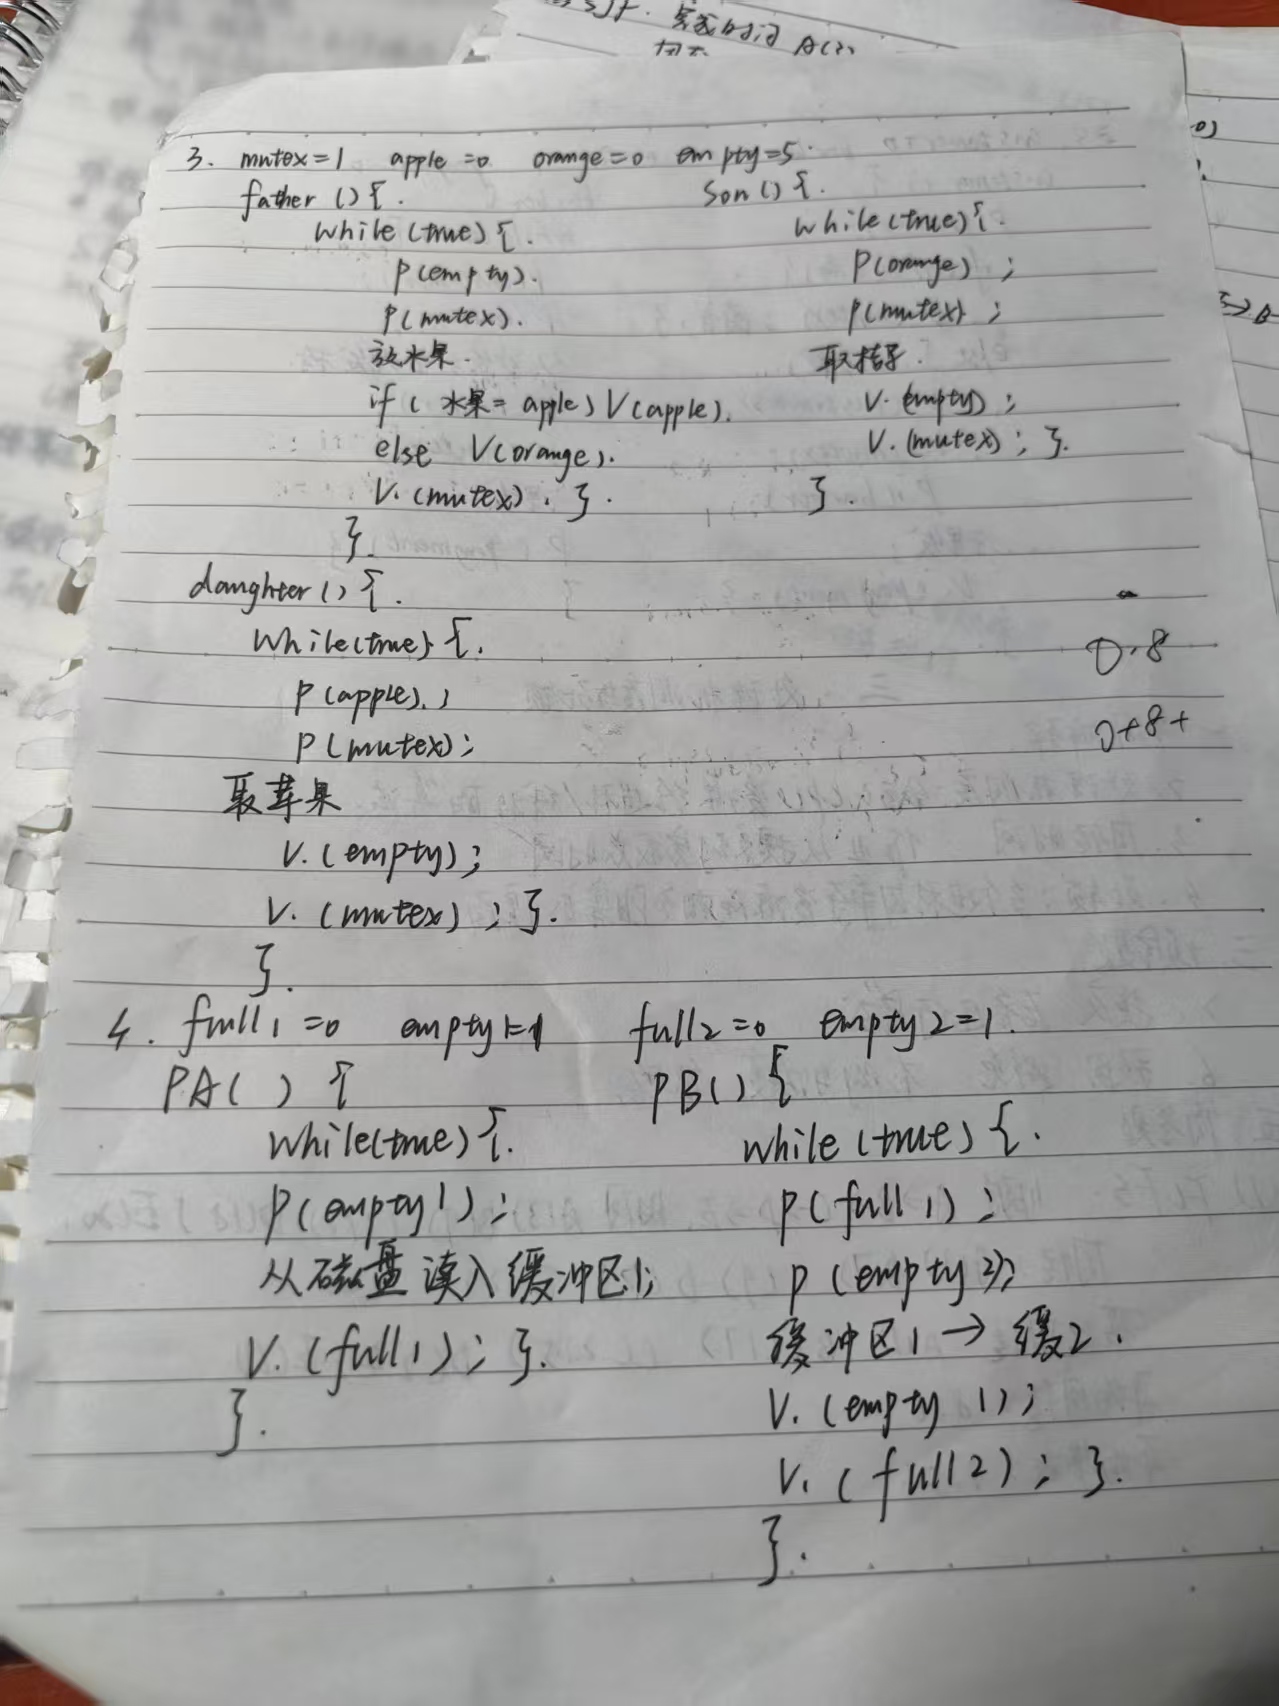 3. mutex=1 apple=0 orange=0 empty=5
father () {.
while (true) {.
P(empty).
P(mutex).
放水果.
if ( 水果= apple) V(apple).
else V(orange).
V.(mutex). }.
}.
Son () {.
while (true) {.
P(orange) ;
P(mutex) ;
取桔子.
V.(empty) ;
V.(mutex) ; }.
}.
daughter () {.
While(true) {.
P(apple). ;
P(mutex);
取苹果
V.(empty);
V.(mutex) ; }.
}.
0.8
0+8+
4. full1=0 empty1=1 full2=0 empty2=1.
PA( ) {
While(true) {.
P(empty1);
从磁盘读入缓冲区1;
V.(full1); }.
}.
PB( ) {
while (true) {.
P(full1);
P(empty2);
缓冲区1 → 缓2.
V.(empty 1);
V.(full2); }.
}.
A(3)